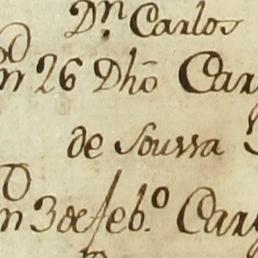 Dn. Carlos
en 26 Dhō Car
de Soussa
en 3 de feb.º Car